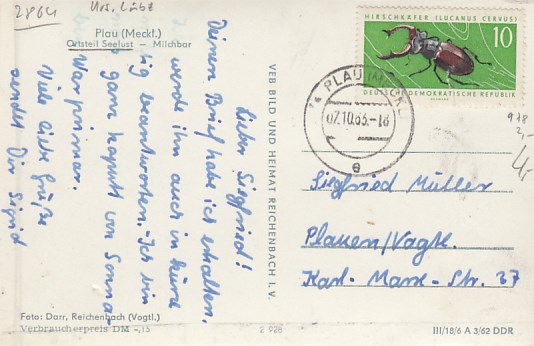 2864
Urs. Lübz
Plau (Meckl.)
Ortsteil Seelust — Milchbar
Lieber Siegfried!
Deinen Brief habe ich erhalten.
werde ihn auch in kürze
beantworten. Ich bin
ganz kaputt von Sonna-
War prima.
Viele liebe Grüße
sendet Dir Sigrid
Foto: Darr, Reichenbach (Vogtl.)
Verbraucherpreis DM -,15
VEB BILD UND HEIMAT REICHENBACH I. V.
2 928
HIRSCHKÄFER (LUCANUS CERVUS)
10
DEUTSCHE DEMOKRATISCHE REPUBLIK
PLAU (MECKL)
07.10.63.-18
e
978
2,-
4,-
Siegfried Müller
Plauen/Vogtl.
Karl-Marx-Str. 37
III/18/6 A 3/62 DDR